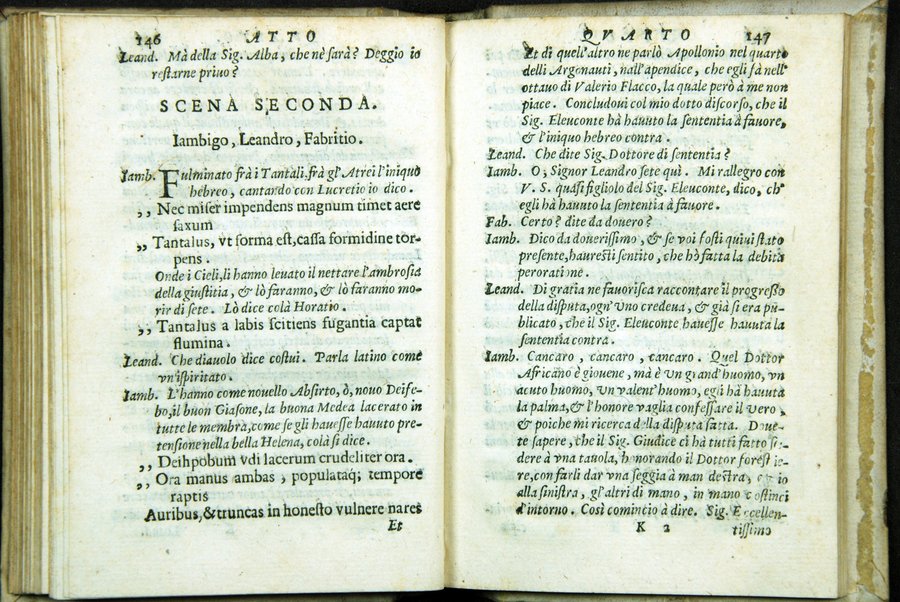 146 ATTO
Leand. Mà della Sig. Alba, che nè sarà? Deggio io
restarne priuo?
SCENA SECONDA.
Iambigo, Leandro, Fabritio.
Iamb. Fulminato frà i Tantali, frà gl'Atrei l'iniquo
hebreo, cantando con Lucretio io dico.
,, Nec miser impendens magnum timet aere
saxum
,, Tantalus, vt forma est, cassa formidine tor-
pens.
Onde i Cieli, li hanno leuato il nettare l'ambrosia
della giustitia, & lò faranno, & lò faranno mo-
rir di sete. Lò dice colà Horatio.
,, Tantalus a labis scitiens fugantia captat
flumina.
Leand. Che diauolo dice costui. Parla latino come
vn'ispiritato.
Iamb. L'hanno come nouello Absirto, ò, nouo Deife-
bo, il buon Giasone, la buona Medea lacerato in
tutte le membra, come se gli hauesse hauuto pre-
tensione nella bella Helena, colà si dice.
,, Deihpobum vdi lacerum crudeliter ora.
,, Ora manus ambas, populataq; tempore
raptis
Auribus, & truncas in honesto vulnere nares
Et
QVARTO 147
Et di quell'altro ne parlò Apollonio nel quarto
delli Argonauti, nall'apendice, che egli fà nell'
ottauo di Valerio Flacco, la quale però à me non
piace. Concludoui col mio dotto discorso, che il
Sig. Eleuconte hà hauuto la sententia à fauore,
& l'iniquo hebreo contra.
Leand. Che dite Sig. Dottore di sententia?
Iamb. O, Signor Leandro sete quì. Mi rallegro con
V. S. quasi figliolo del Sig. Eleuconte, dico, ch'
egli hà hauuto la sententia à fauore.
Fab. Certo? dite da douero?
Iamb. Dico da douerissimo, & se voi fosti quiui stato
presente, hauresti sentito, che hò fatta la debita
perorati me.
Leand. Di gratia ne fauorisca raccontare il progresso
della disputa, ogn'Vno credeua, & già si era pu-
blicato, che il Sig. Eleuconte hauesse hauuta la
sententia contra.
Iamb. Cancaro, cancaro, cancaro. Quel Dottor
Africano è giouene, mà è Vn grand'huomo, vn
acuto huomo, Vn valent'huomo, egli hà hauuta
la palma, & l'honore vaglia confessare il vero,
& poiche mi ricerca della disputa fatta. Doue-
te sapere, che il Sig. Giudice ci hà tutti fatto se-
dere à vna tauola, honorando il Dottor forestie-
re, con farli dar vna seggia à man destra, & io
alla sinistra, gl'altri di mano, in mano costinci
d'intorno. Così comincio à dire. Sig. Eccellen-
K 2 tissimo